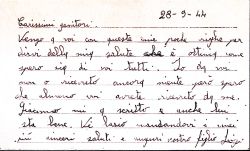 28-9-44
Carissimi genitori.
Vengo a voi con queste mie poche righe per
dirvi della mia salute che è ottima così
spero sia di voi tutti. Io da voi
non o ricevuto ancora niente però spero
che almeno voi avrete ricevuto da me.
Giacomo mi a scritto e anche lui
sta bene. Vi lascio mandandovi i miei
più sinceri saluti e auguri vostro figlio